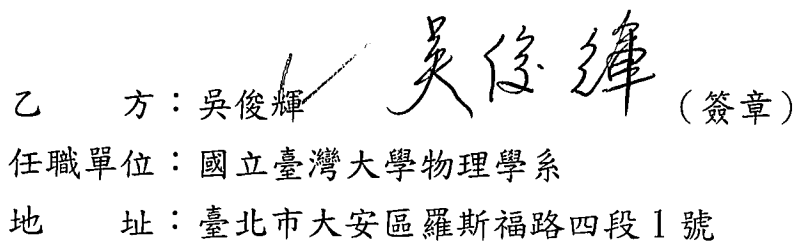 乙　　方：吳俊輝 吳俊輝 （簽章）
任職單位：國立臺灣大學物理學系
地　　址：臺北市大安區羅斯福路四段1號